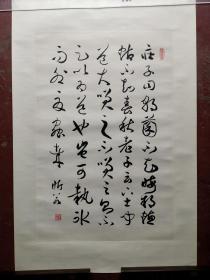 莊子曰朝菌不知晦朔蟪
蛄不知春秋老子云下士聞
道大笑之不笑之不
足以為道也豈可執冰
而咎夏蟲哉